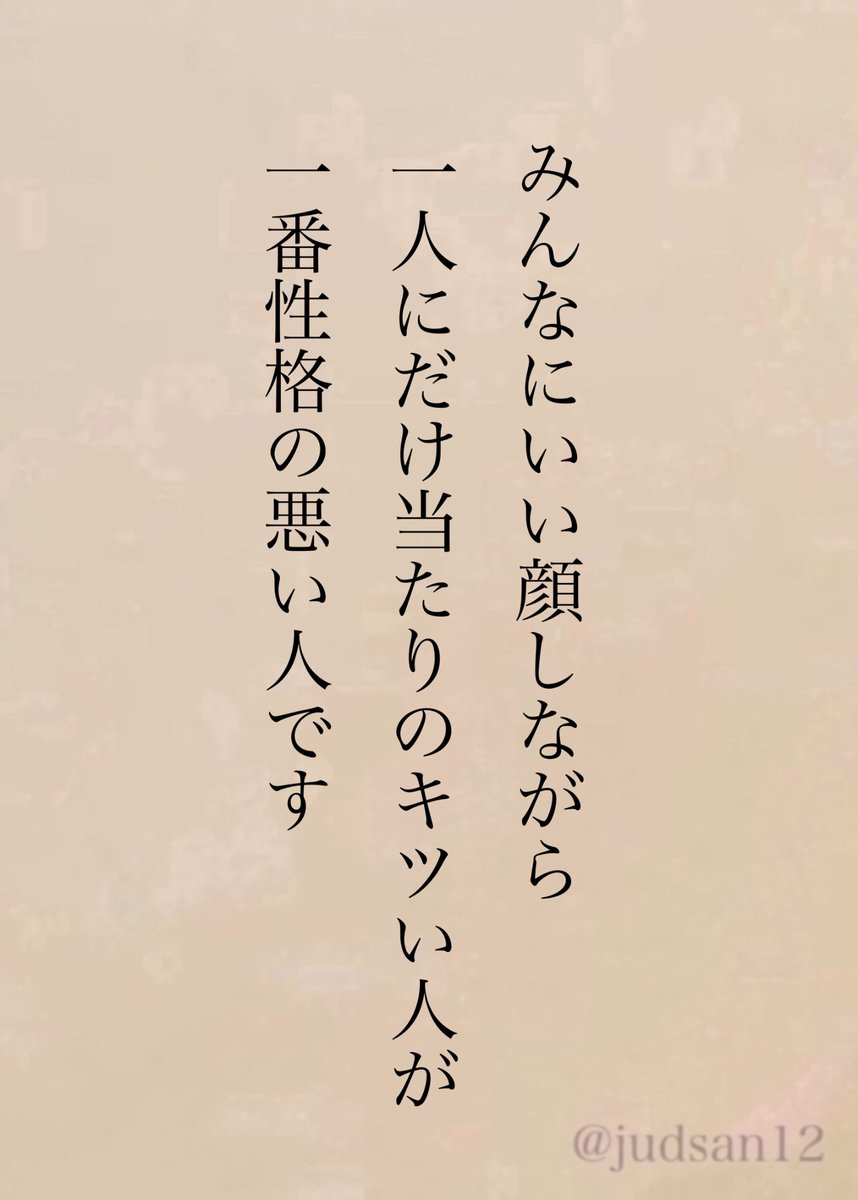 みんなにいい顔しながら
一人にだけ当たりのキツい人が
一番性格の悪い人です
@judsan12